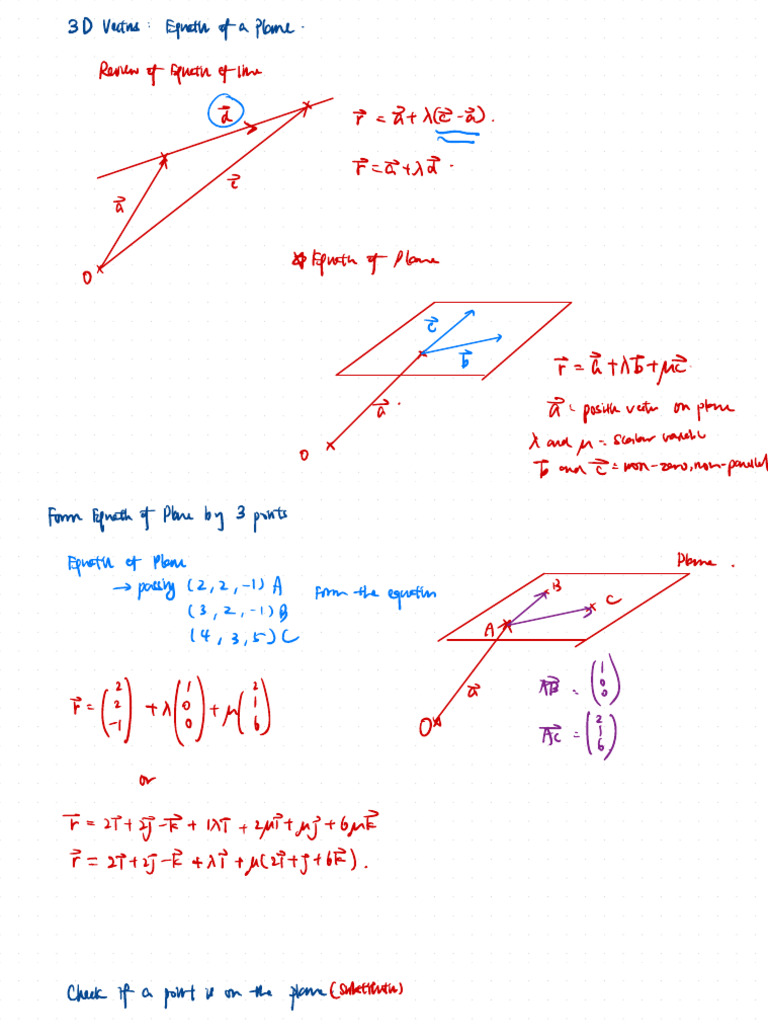 3D Vectors : Equation of a Plane.
Review of Equation of line
d⃗
r⃗ = a⃗ + λ(c⃗ - a⃗).
r⃗ = a⃗ + λd⃗.
a⃗
c⃗
O
Equation of Plane
c⃗
b⃗
r⃗ = a⃗ + λb⃗ + μc⃗.
a⃗ = position vector on plane
a⃗.
λ and μ = scalar variable
O
b⃗ and c⃗ = non-zero, non-parallel
Form Equation of Plane by 3 points
Equation of Plane
→ passing (2, 2, -1) A Form the equation
(3, 2, -1) B
(4, 3, 5) C
Plane.
B
C
A
a⃗
O
AB⃗ = (1 0 0)
AC⃗ = (2 1 6)
r⃗ = (2 2 -1) + λ(1 0 0) + μ(2 1 6)
or
r⃗ = 2i⃗ + 2j⃗ - k⃗ + 1λi⃗ + 2μi⃗ + μj⃗ + 6μk⃗
r⃗ = 2i⃗ + 2j⃗ - k⃗ + λi⃗ + μ(2i⃗ + j⃗ + 6k⃗).
Check if a point is on the plane (substitution)